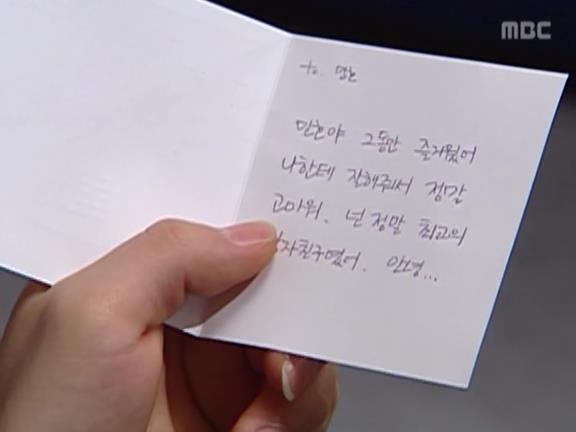 MBC
to. 민호
민호야 그동안 즐거웠어
나한테 잘해줘서 정말
고마워. 넌 정말 최고의
남자친구였어. 안녕...